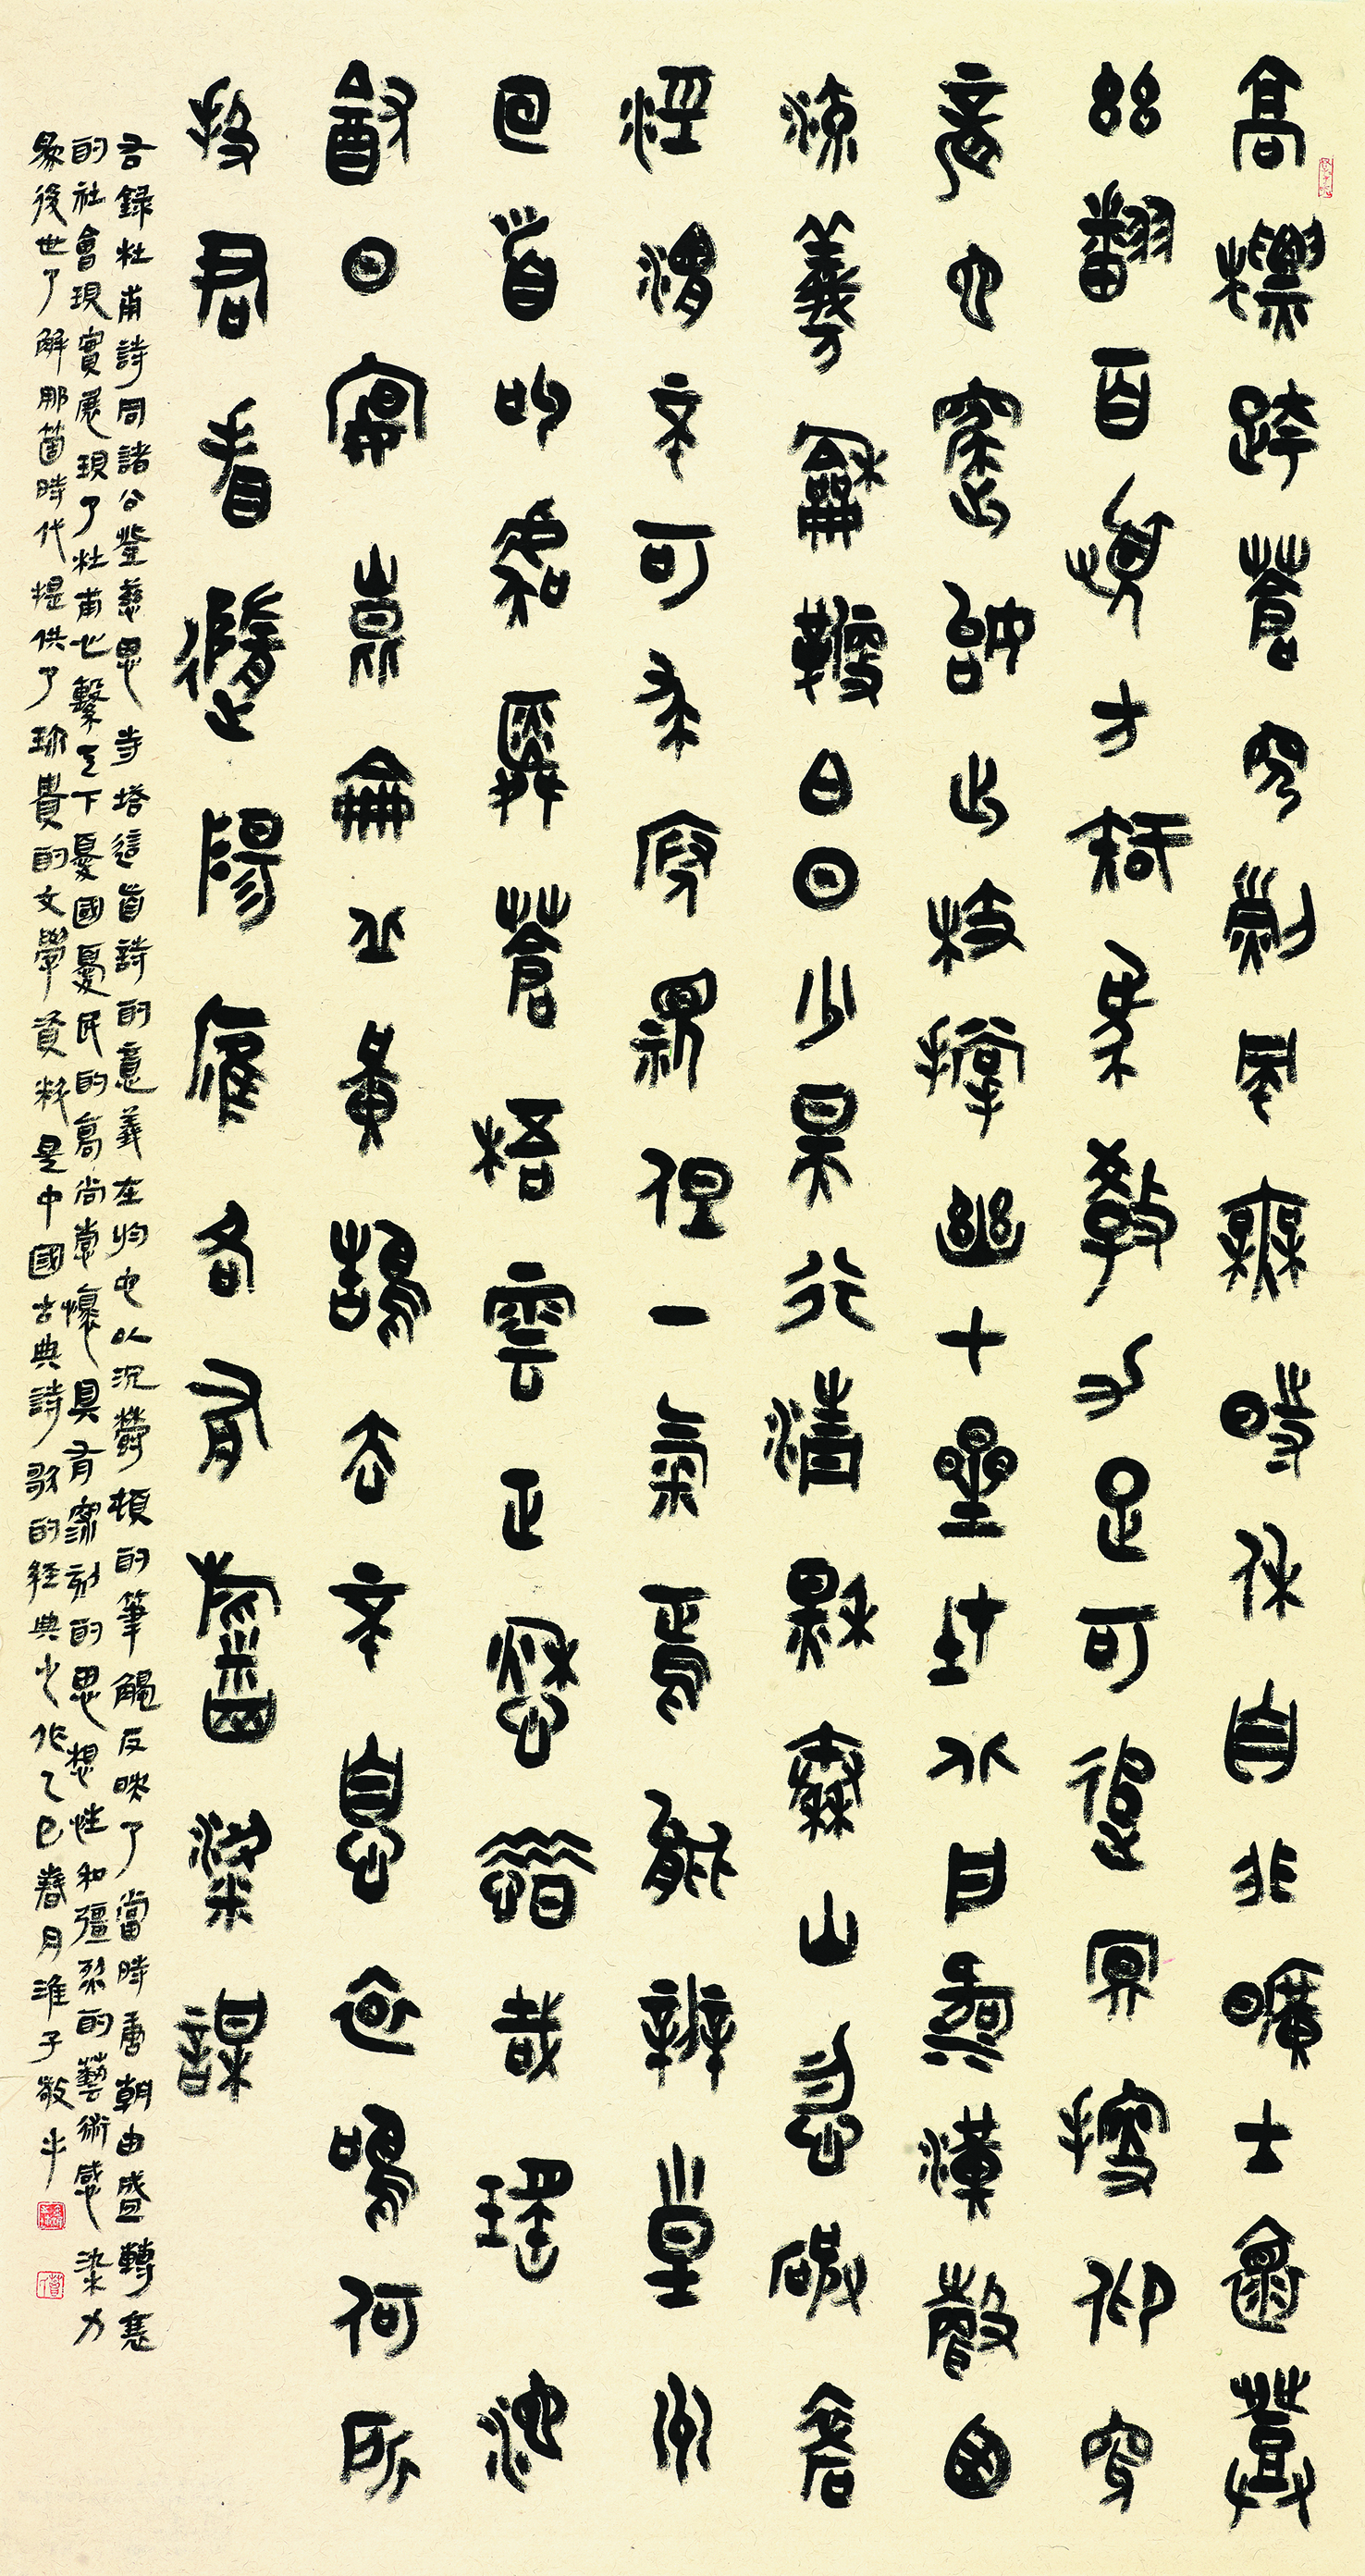 高標跨蒼穹烈風無時休自非曠士懷登
茲翻百憂方知象教力足可追冥搜仰穿
龍蛇窟始出枝撐幽七星在北戶河漢聲西
流羲和鞭白日少昊行清秋秦山忽破碎
涇渭不可求俯視但一氣焉能辨皇州
回首叫虞舜蒼梧雲正愁惜哉瑤池
飲日晏崑崙丘黃鵠去不息哀鳴何所
投君看隨陽雁各有稻粱謀
右錄杜甫詩同諸公登慈恩寺塔這首詩的意義在於它以沉鬱頓的筆觸反映了當時唐朝由盛轉衰
的社會現實展現了杜甫心繫天下憂國憂民的高尚懷具有深刻的思想性和彊烈的藝術感染力
為後世了解那箇時代提供了珍貴的文學資料是中國古典詩歌的經典之作乙巳春月淮子敬